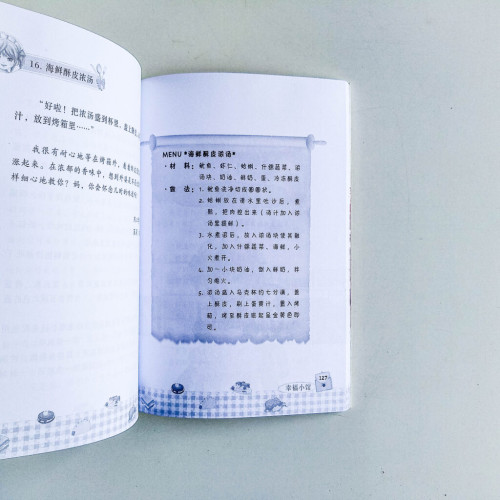 16. 海鲜酥皮浓汤
“好啦！把浓汤盛到杯里，盖上
汁，放到烤箱里……”
我很有耐心地等在烤箱外，看着
涨起来。在浓郁的香味中，想到外
样细心地教你？妈，你会怀念儿时的
MENU *海鲜酥皮浓汤*
· 材 料：鱿鱼、虾仁、蛤蜊、什锦蔬菜、浓
汤块、奶油、鲜奶、蛋、冷冻酥皮
· 做 法：1. 鱿鱼洗净切成圈圈状。
2. 蛤蜊放在清水里吐沙后，煮
熟，把肉挖出来（汤汁加入浓
汤里提鲜）。
3. 水煮滚后，放入浓汤块使其融
化，加入什锦蔬菜、海鲜，小
火煮开。
4. 加一小块奶油，倒入鲜奶，拌
匀熄火。
5. 浓汤盛入马克杯约七分满，盖
上酥皮，刷上蛋黄汁，置入烤
箱，烤至酥皮胀起呈金黄色即
可。
幸福小馆
127